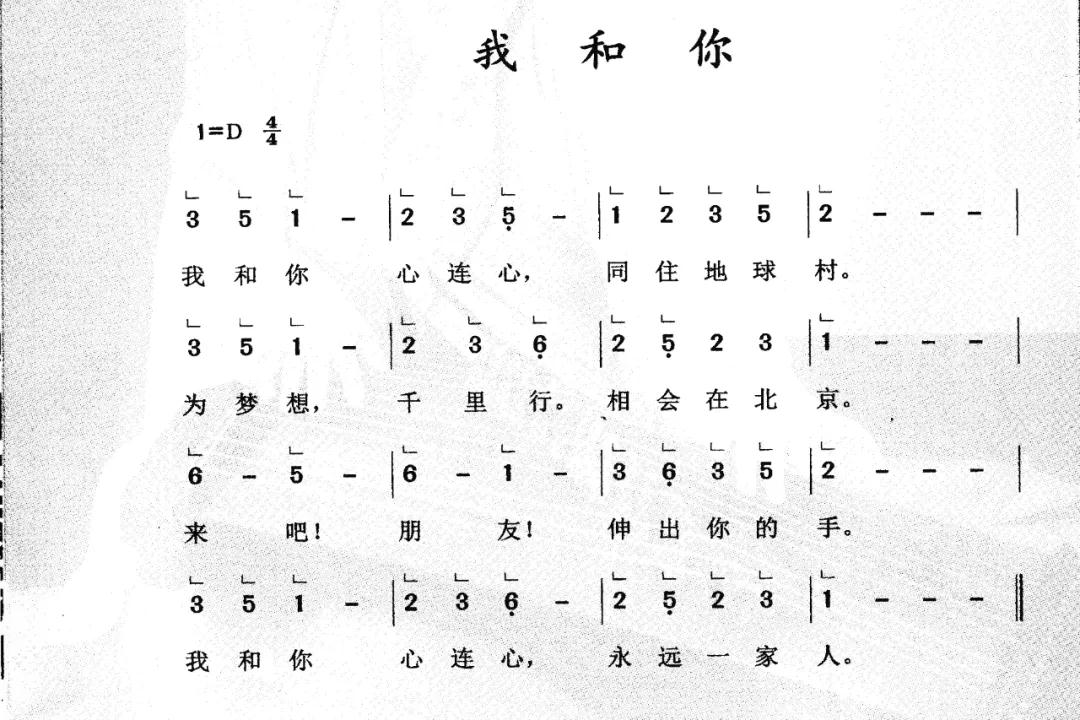 我和你
1=D 4/4
3 5 1 - | 2 3 5̣ - | 1 2 3 5 | 2 - - - |
我和你 心连心， 同住地球村。
3 5 1 - | 2 3 6̣ | 2 5̣ 2 3 | 1 - - - |
为梦想， 千里行。 相会在北京。
6 - 5 - | 6 - 1 - | 3 6̣ 3 5 | 2 - - - |
来吧！ 朋友！ 伸出你的手。
3 5 1 - | 2 3 6̣ - | 2 5̣ 2 3 | 1 - - - ‖
我和你 心连心， 永远一家人。